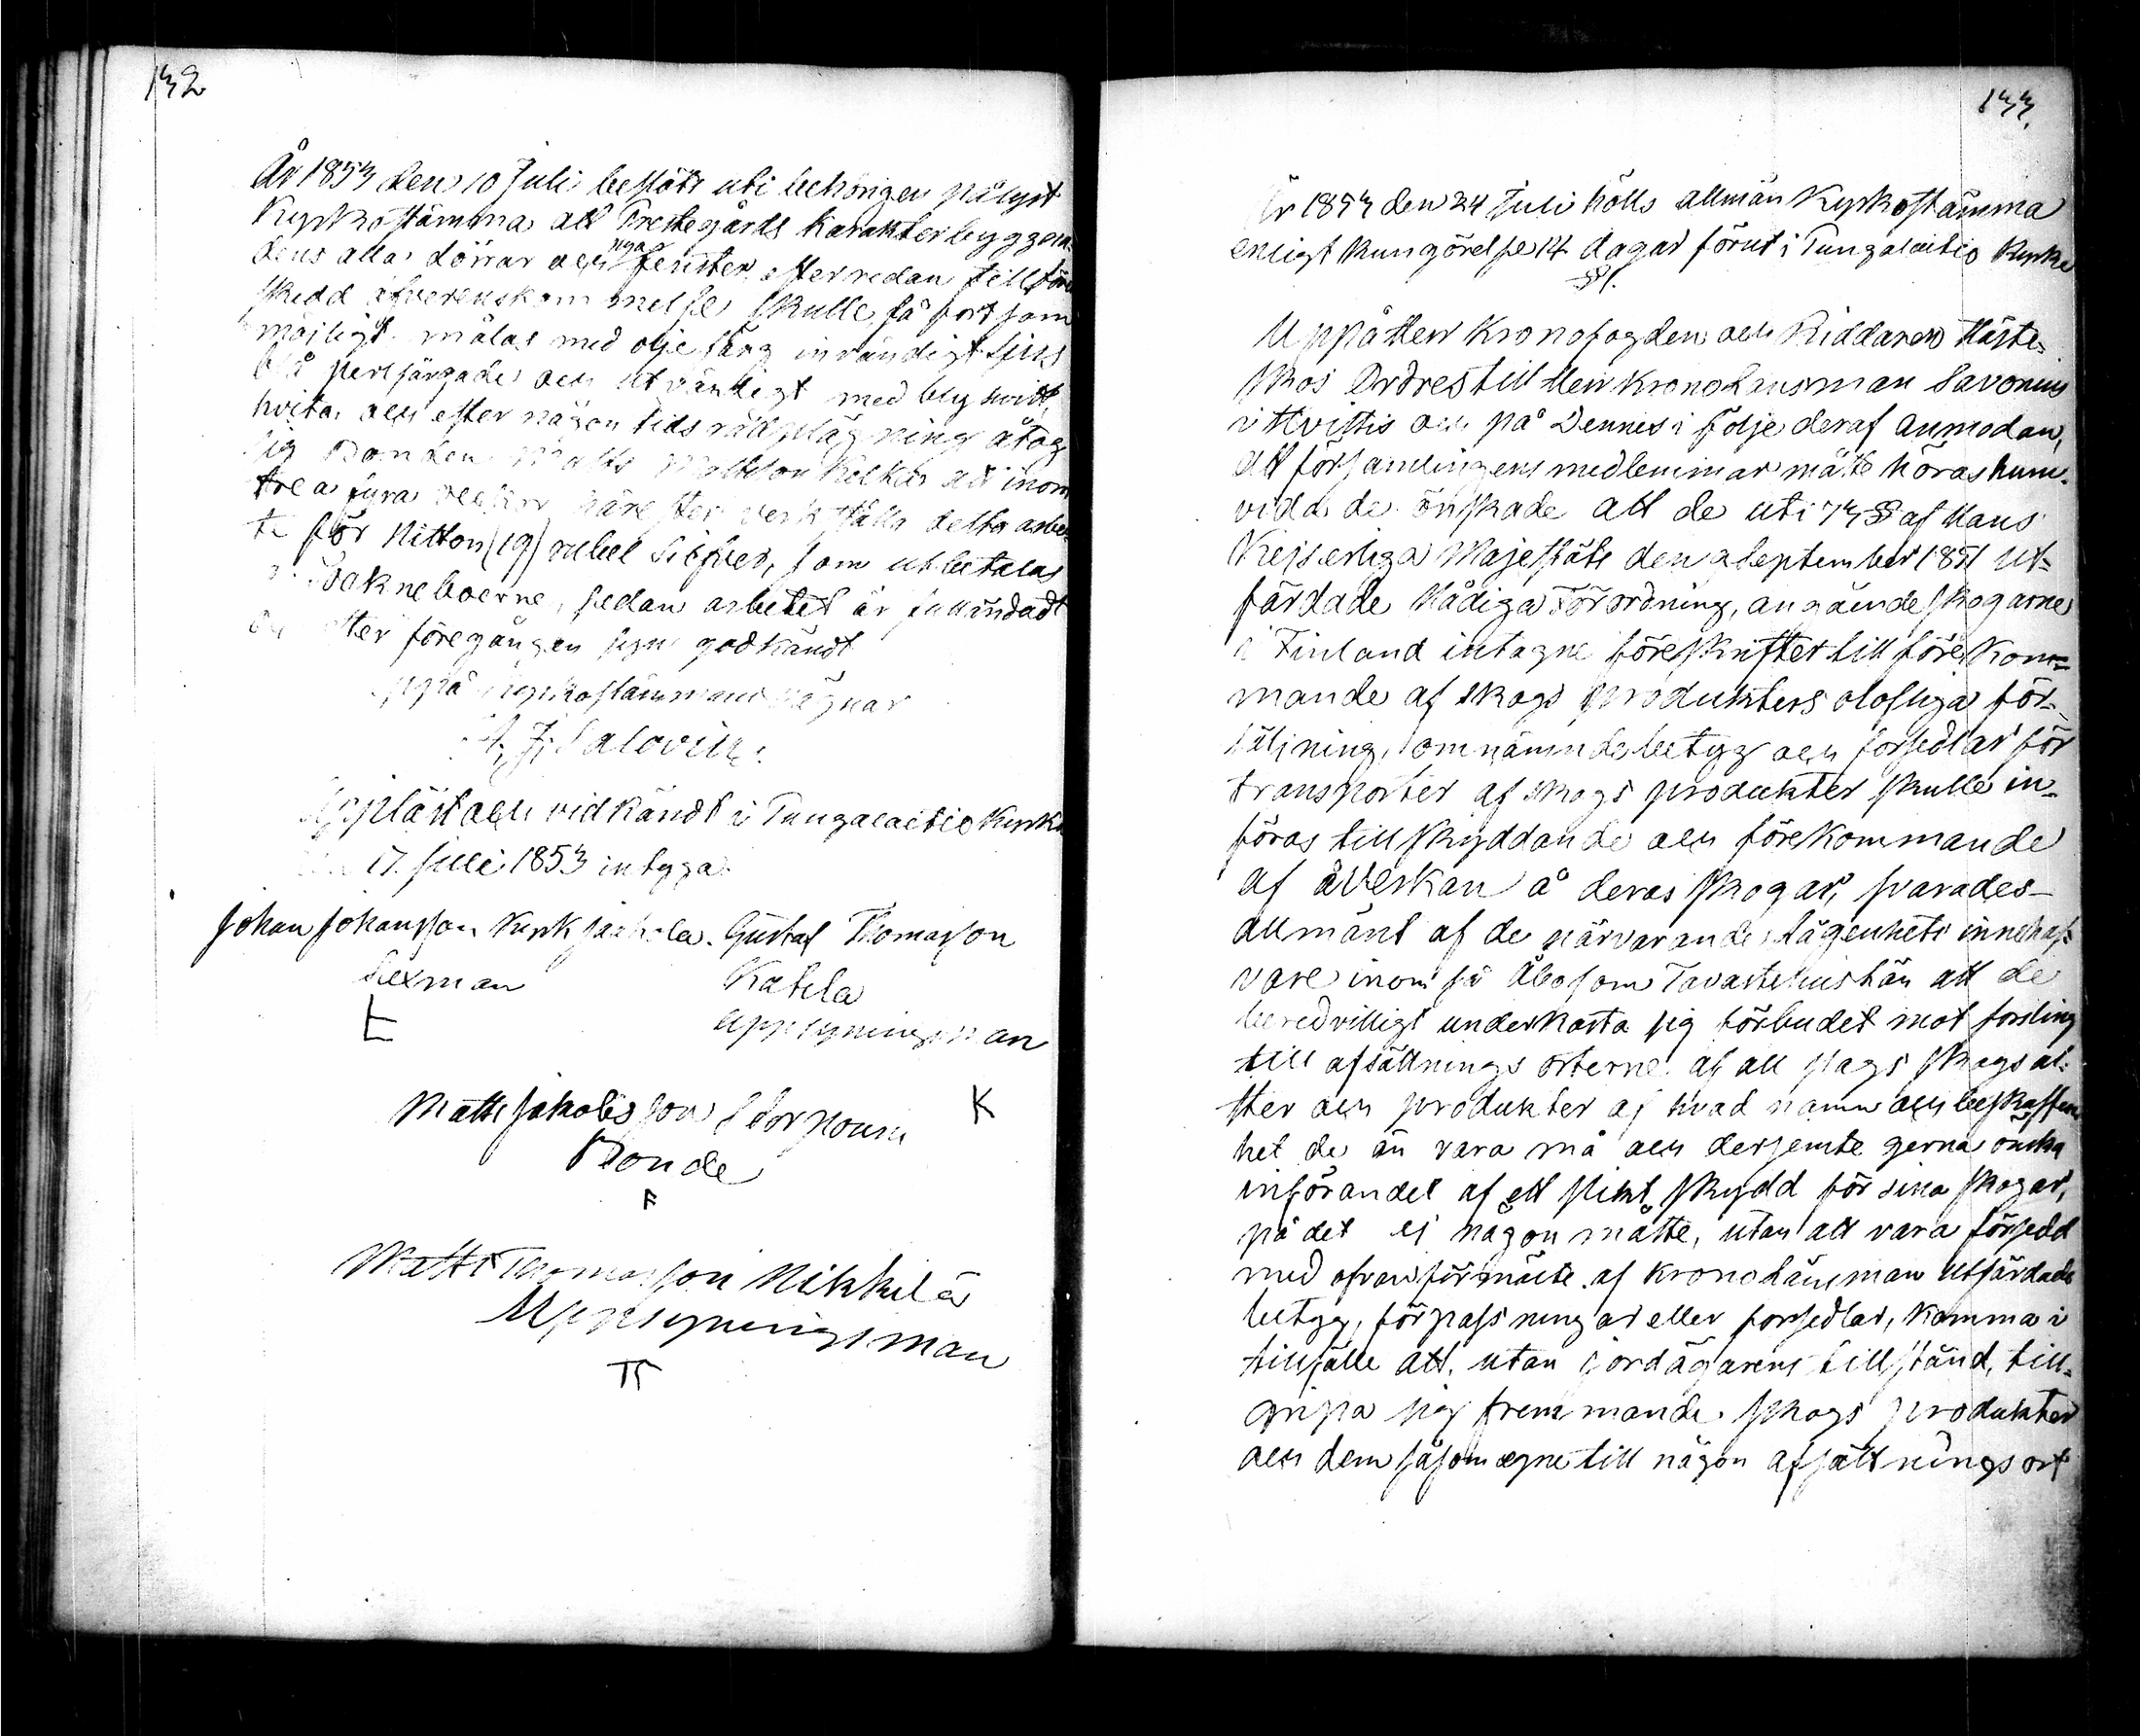 132
År 1853 den 10 Juli beslöts uti behörigen pålyst
Kyrkostämma att Prestegårds Karakterbyggna
dens alla dörrar och nya fenster efter redan tillföre
skedd öfverenskommelse skulle så fort som
möjligt målas med oljefärg invändigt ljus
blå perlfärgade och utvändigt med blyhvitt
hvita, och efter någon tids rådplägning åtog
sig Bonden Matts Mattsson Kolkka att inom
tre a fyra veckor härefter verkställa detta arbe
te för Nitton (19) rubel Silfver, som utbetalas
af Sockneboerne, sedan arbetet är fulländadt
och efter föregången syn godkändt
uppå Kyrkostämmans vägnar
A. J. Salovius.
Uppläst och vidkändt i Pungalaitio Kyrka
den 17 Juli 1853 intyga.
Johan Johansson Kurkijaakola. Gustaf Thomasson
Sexman Katila
uppsyningsman
Matts Jakobsson Storponsi K
Bonde
Matts Thomasson Nikkilä
Uppsyningsman
133.
År 1853 den 24 Juli hölls allmän Kyrkostämma
enligt kungörelse 14 dagar förut i Pungalaitio Kyrka
§ 1.
Uppå Herr Kronofogden och Riddaren Häste-
skos Ordres till Herr Kronolänsman Savonius
i Hvittis och på Dennes i följe deraf anmodan,
att församlingens medlemmar måtte höras huru-
vida de önskade att de uti 73 § af Hans
Kejserliga Majestäts den 9 September 1851 ut-
färdade Nådiga Förordning, angående skogarne
i Finland intagne föreskrifter till förekom-
mande af skogs produkters olofliga för-
säljning, omnämnde betyg och forsedlar för
transporter af skogs produkter skulle in-
föras till skyddande och förekommande
af åverkan å deras skogar, svarades
allmänt af de närvarande lägenhets innehaf-
vare inom så Åbo som Tavastehus län att de
beredvilligt underkasta sig förbudet mot forsling
till afsättnings orterne af all slags skogs al-
ster och produkter af hvad namn och beskaffen
het de än vara må och dersemte gerna önska
införandet af ett slikt skydd för sina skogar,
på det ej någon måtte, utan att vara försedd
med ofvanförmälte af Kronolänsman utfärdade
betyg, förpassningar eller forsedlar, komma i
tillfälle att, utan jordägarens tillstånd, till-
gripa sig fremmande skogs produkter
och dem såsom egne till någon afsättningsort